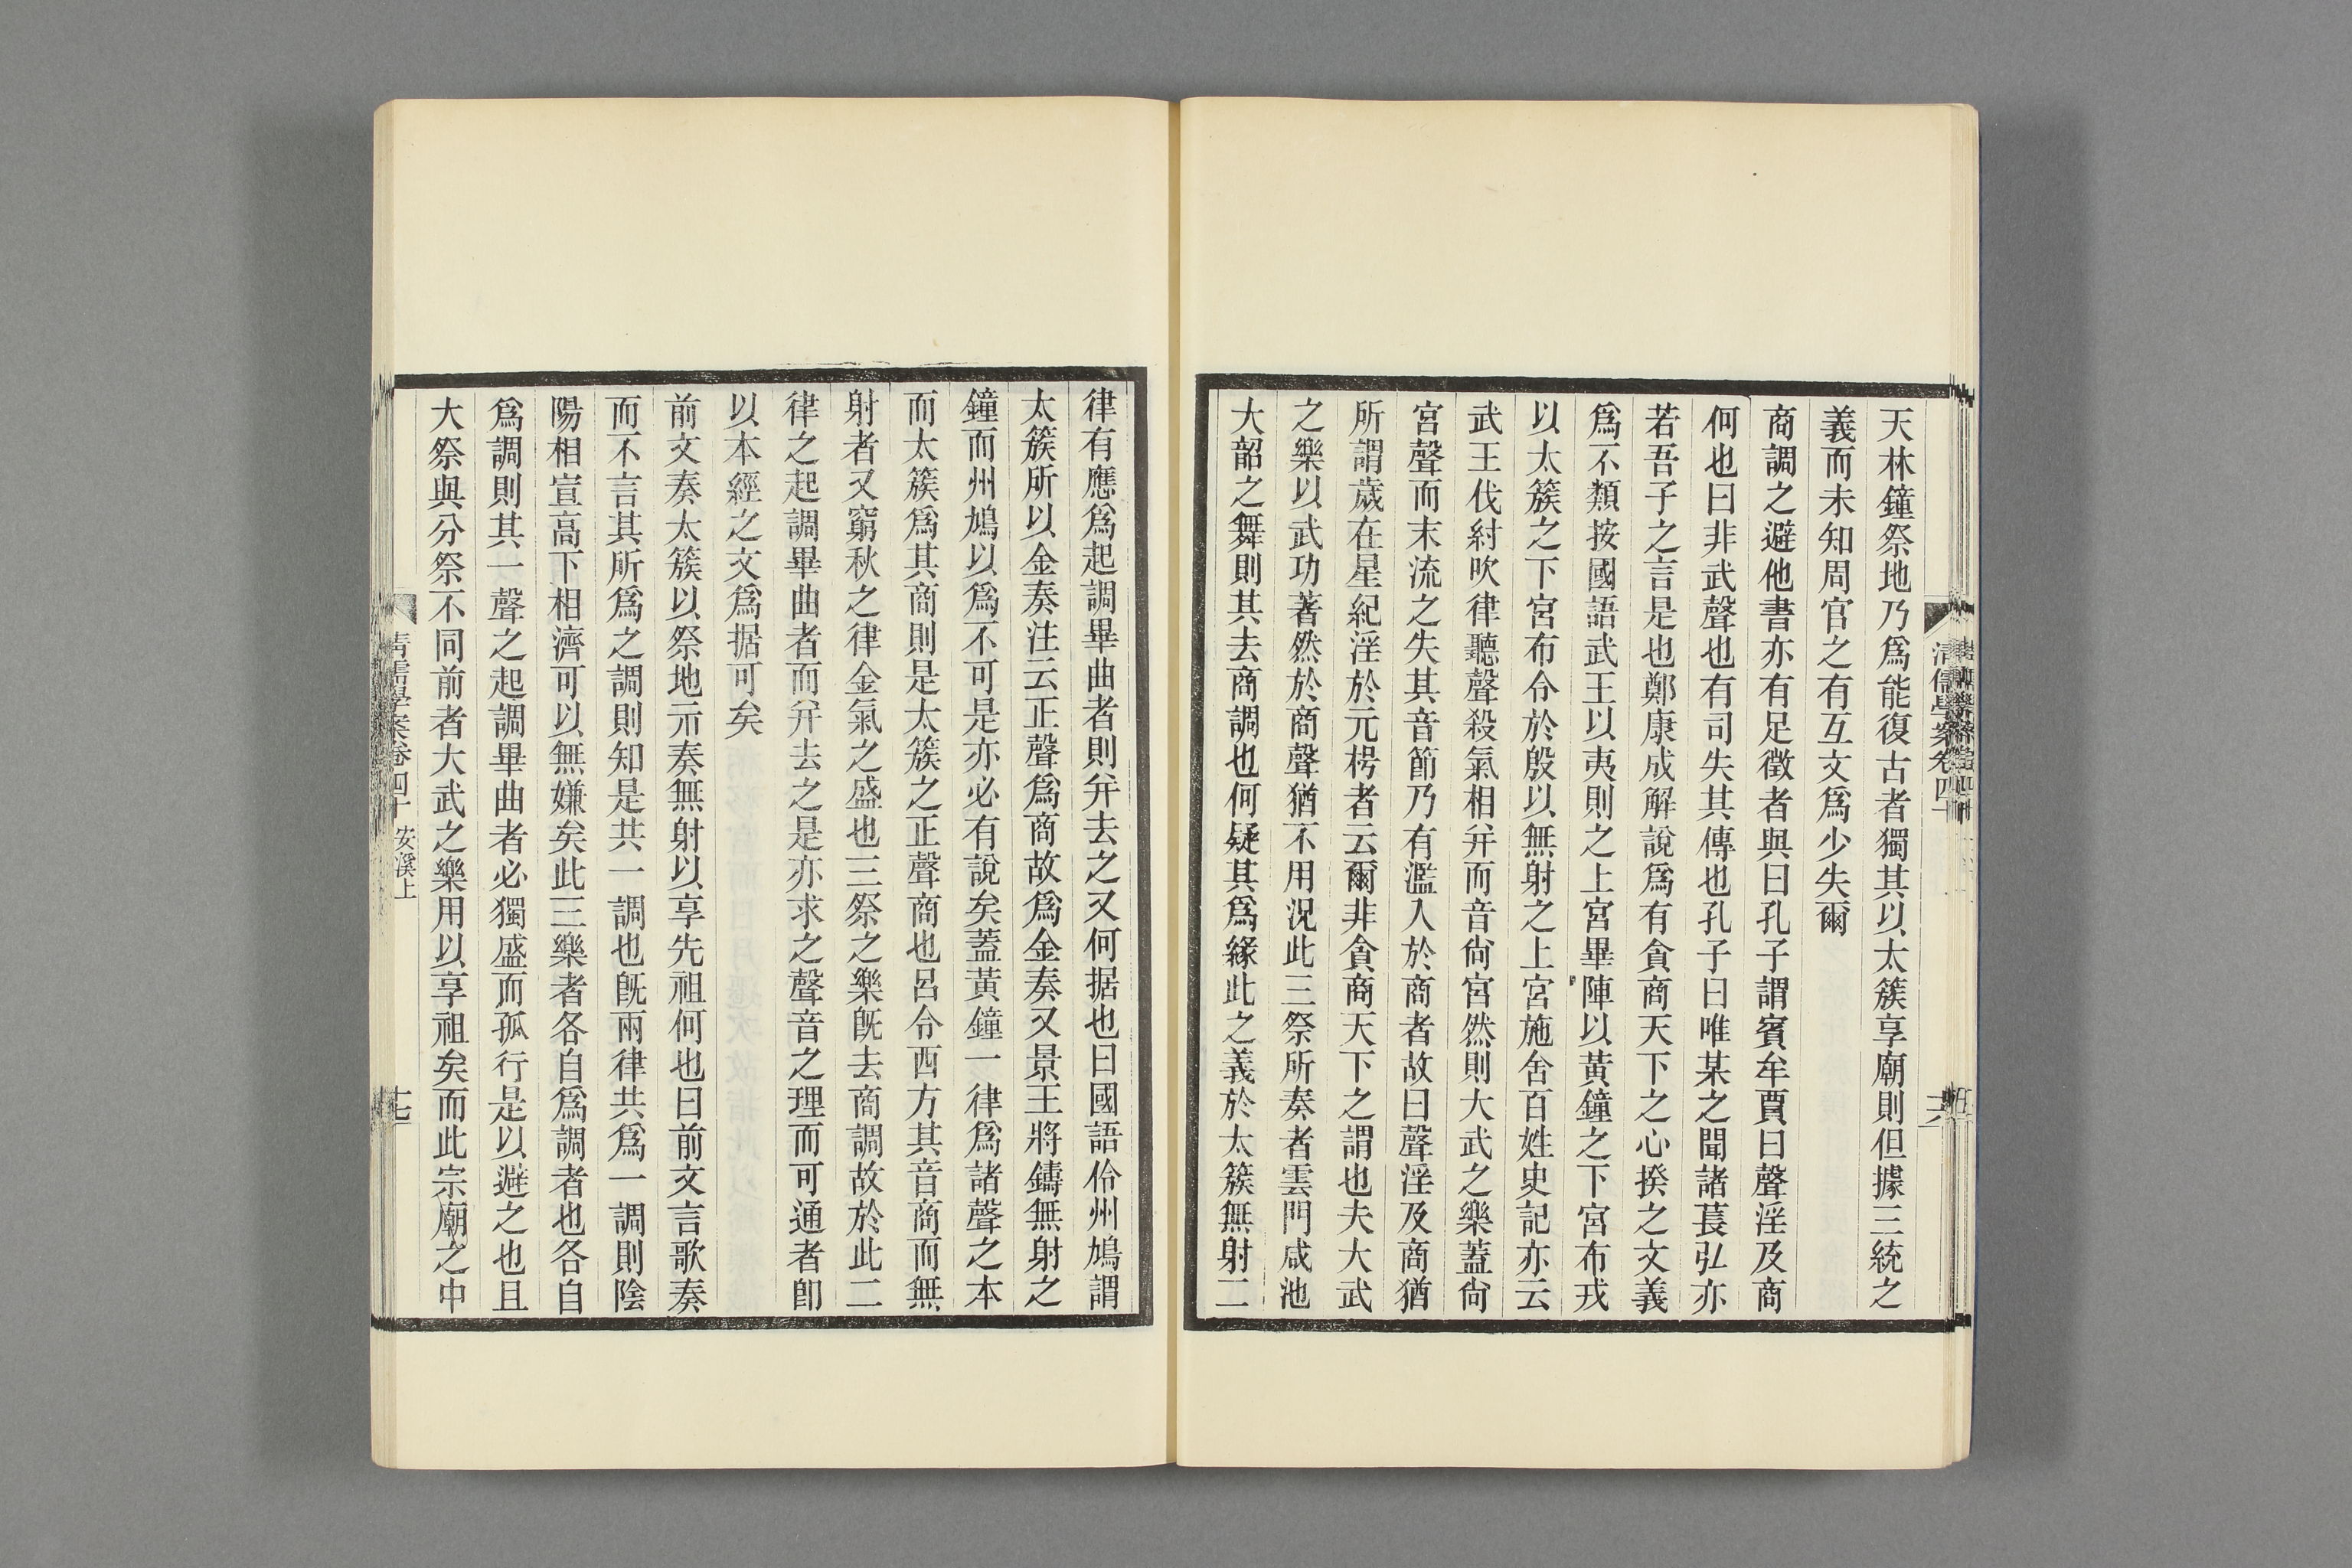 天林鐘祭地乃爲能復古者獨其以太簇享廟則但據三統之
義而未知周官之有互文爲少失爾
商調之避他書亦有足徵者與曰孔子謂賓牟賈曰聲淫及商
何也曰非武聲也有司失其傳也孔子曰唯某之聞諸萇弘亦
若吾子之言是也鄭康成解說爲有貪商天下之心揆之文義
爲不類按國語武王以夷則之上宮畢陣以黃鐘之下宮布戎
以太簇之下宮布令於殷以無射之上宮施舍百姓史記亦云
武王伐紂吹律聽聲殺氣相幷而音尙宮然則大武之樂蓋尙
宮聲而末流之失其音節乃有濫入於商者故曰聲淫及商猶
所謂歲在星紀淫於元枵者云爾非貪商天下之謂也夫大武
之樂以武功著然於商聲猶不用況此三祭所奏者雲門咸池
大韶之舞則其去商調也何疑其爲緣此之義於太簇無射二
清儒學案卷四十
十六
律有應爲起調畢曲者則幷去之又何据也曰國語伶州鳩謂
太簇所以金奏注云正聲爲商故爲金奏又景王將鑄無射之
鐘而州鳩以爲不可是亦必有說矣蓋黃鐘一律爲諸聲之本
而太簇爲其商則是太簇之正聲商也呂令西方其音商而無
射者又窮秋之律金氣之盛也三祭之樂旣去商調故於此二
律之起調畢曲者而幷去之是亦求之聲音之理而可通者卽
以本經之文爲据可矣
前文奏太簇以祭地示奏無射以享先祖何也曰前文言歌奏
而不言其所爲之調則知是共一調也旣兩律共爲一調則陰
陽相宣高下相濟可以無嫌矣此三樂者各自爲調者也各自
爲調則其一聲之起調畢曲者必獨盛而孤行是以避之也且
大祭與分祭不同前者大武之樂用以享祖矣而此宗廟之中
清儒學案卷四十 安溪上
十七